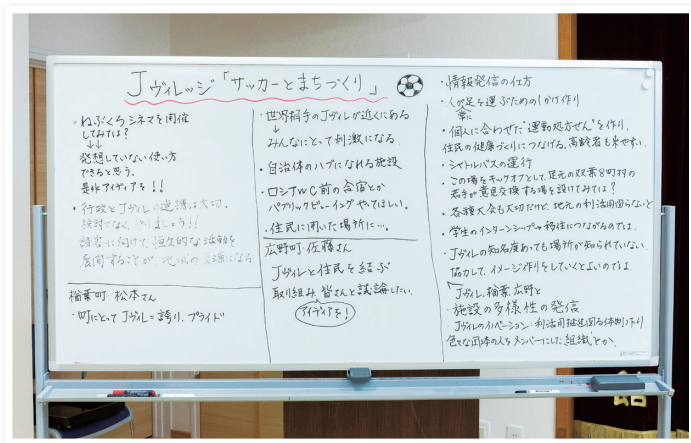 Jヴィレッジ「サッカーとまちづくり」
・ねぶくろシネマを開催
してみては?
↓↓
発想していない使い方
できると思う。
是非アイディアを!!
・行政とJヴィレの連携は大切。
検討でなく、やりましょう!!
誘客に向けて、恒久的な活動を
展開することが地域の支援になる。
楢葉町・松本さん
・町にとってJヴィレ=誇り、プライド
・世界相手のJヴィレが近くにある
↓
みんなにとって刺激になる。
・自治体のハブになれる施設
・ロシアWC前の合宿とか
パブリックビューイングやってほしい。
・住民に開いた場所に…。
広野町・佐藤さん
Jヴィレと住民を結ぶ
取り組み、皆さんと議論したい。
アイディアを!
・情報発信の仕方
・人が足を運ぶためのしかけ作り
常に
・個人に合わせた"運動処方せん"を作り、
住民の健康づくりにつなげる。高齢者も来やすい。
・シャトルバスの運行
・この場をキックオフとして、足元の双葉8町村の
若手が意見交換する場を設けてみては?
・各種大会も大切だけど、地元の利活用図らないと
・学生のインターンシップ→移住につながるのでは。
・Jヴィレの知名度あっても場所が知られていない
協力して、イメージ作りをしていくとよいのでは。
Jヴィレ、楢葉、広野と
・施設の多様性の発信
・Jヴィレのイノベーション:利活用推進図る体制作り。
色々な団体の人をメンバーにした組織とか。